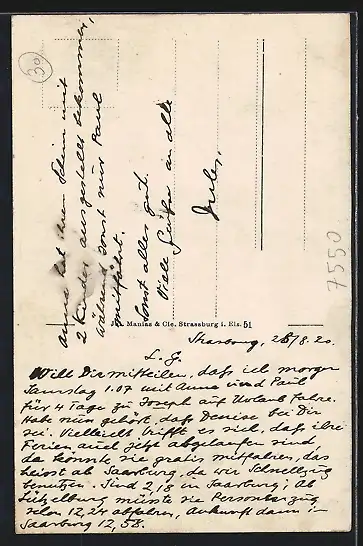 Strasbourg, 28/8.20.
L. G.
Will Dir mitteilen, dass ich morgen
Samstag 1.07 mit Anna und Paul
für 4 Tage zu Joseph auf Urlaub fahre.
Habe nun gehört, dass Denise bei Dir
sei. Vielleicht trifft es sich, dass ihre
Ferien auf jetzt abgelaufen sind,
da könnte sie gratis mitfahren, das
heisst ab Saarburg, da wir Schnellzug
benutzen. Sind 2,18 in Saarburg; Ab
Lützelburg müsste sie Personenzug
schon 12,24 abfahren, Ankunft dann in
Saarburg 12,58.
Anna hat ihren Schein mit
2 Kinder ausgestellt bekommen,
während sonst nur Paul
mitfährt.
Sonst alles gut.
Viele Grüsse an alle
Jules.
Manias & Cie. Strassburg i. Els. 51
50
7550